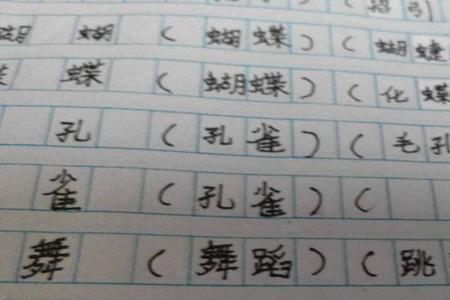 （招引
蝴 蝴（蝴蝶）（蝴蝶
蝶（蝴蝶）（化蝶
孔（孔雀）（毛孔
雀（孔雀）（
舞（舞蹈）（跳